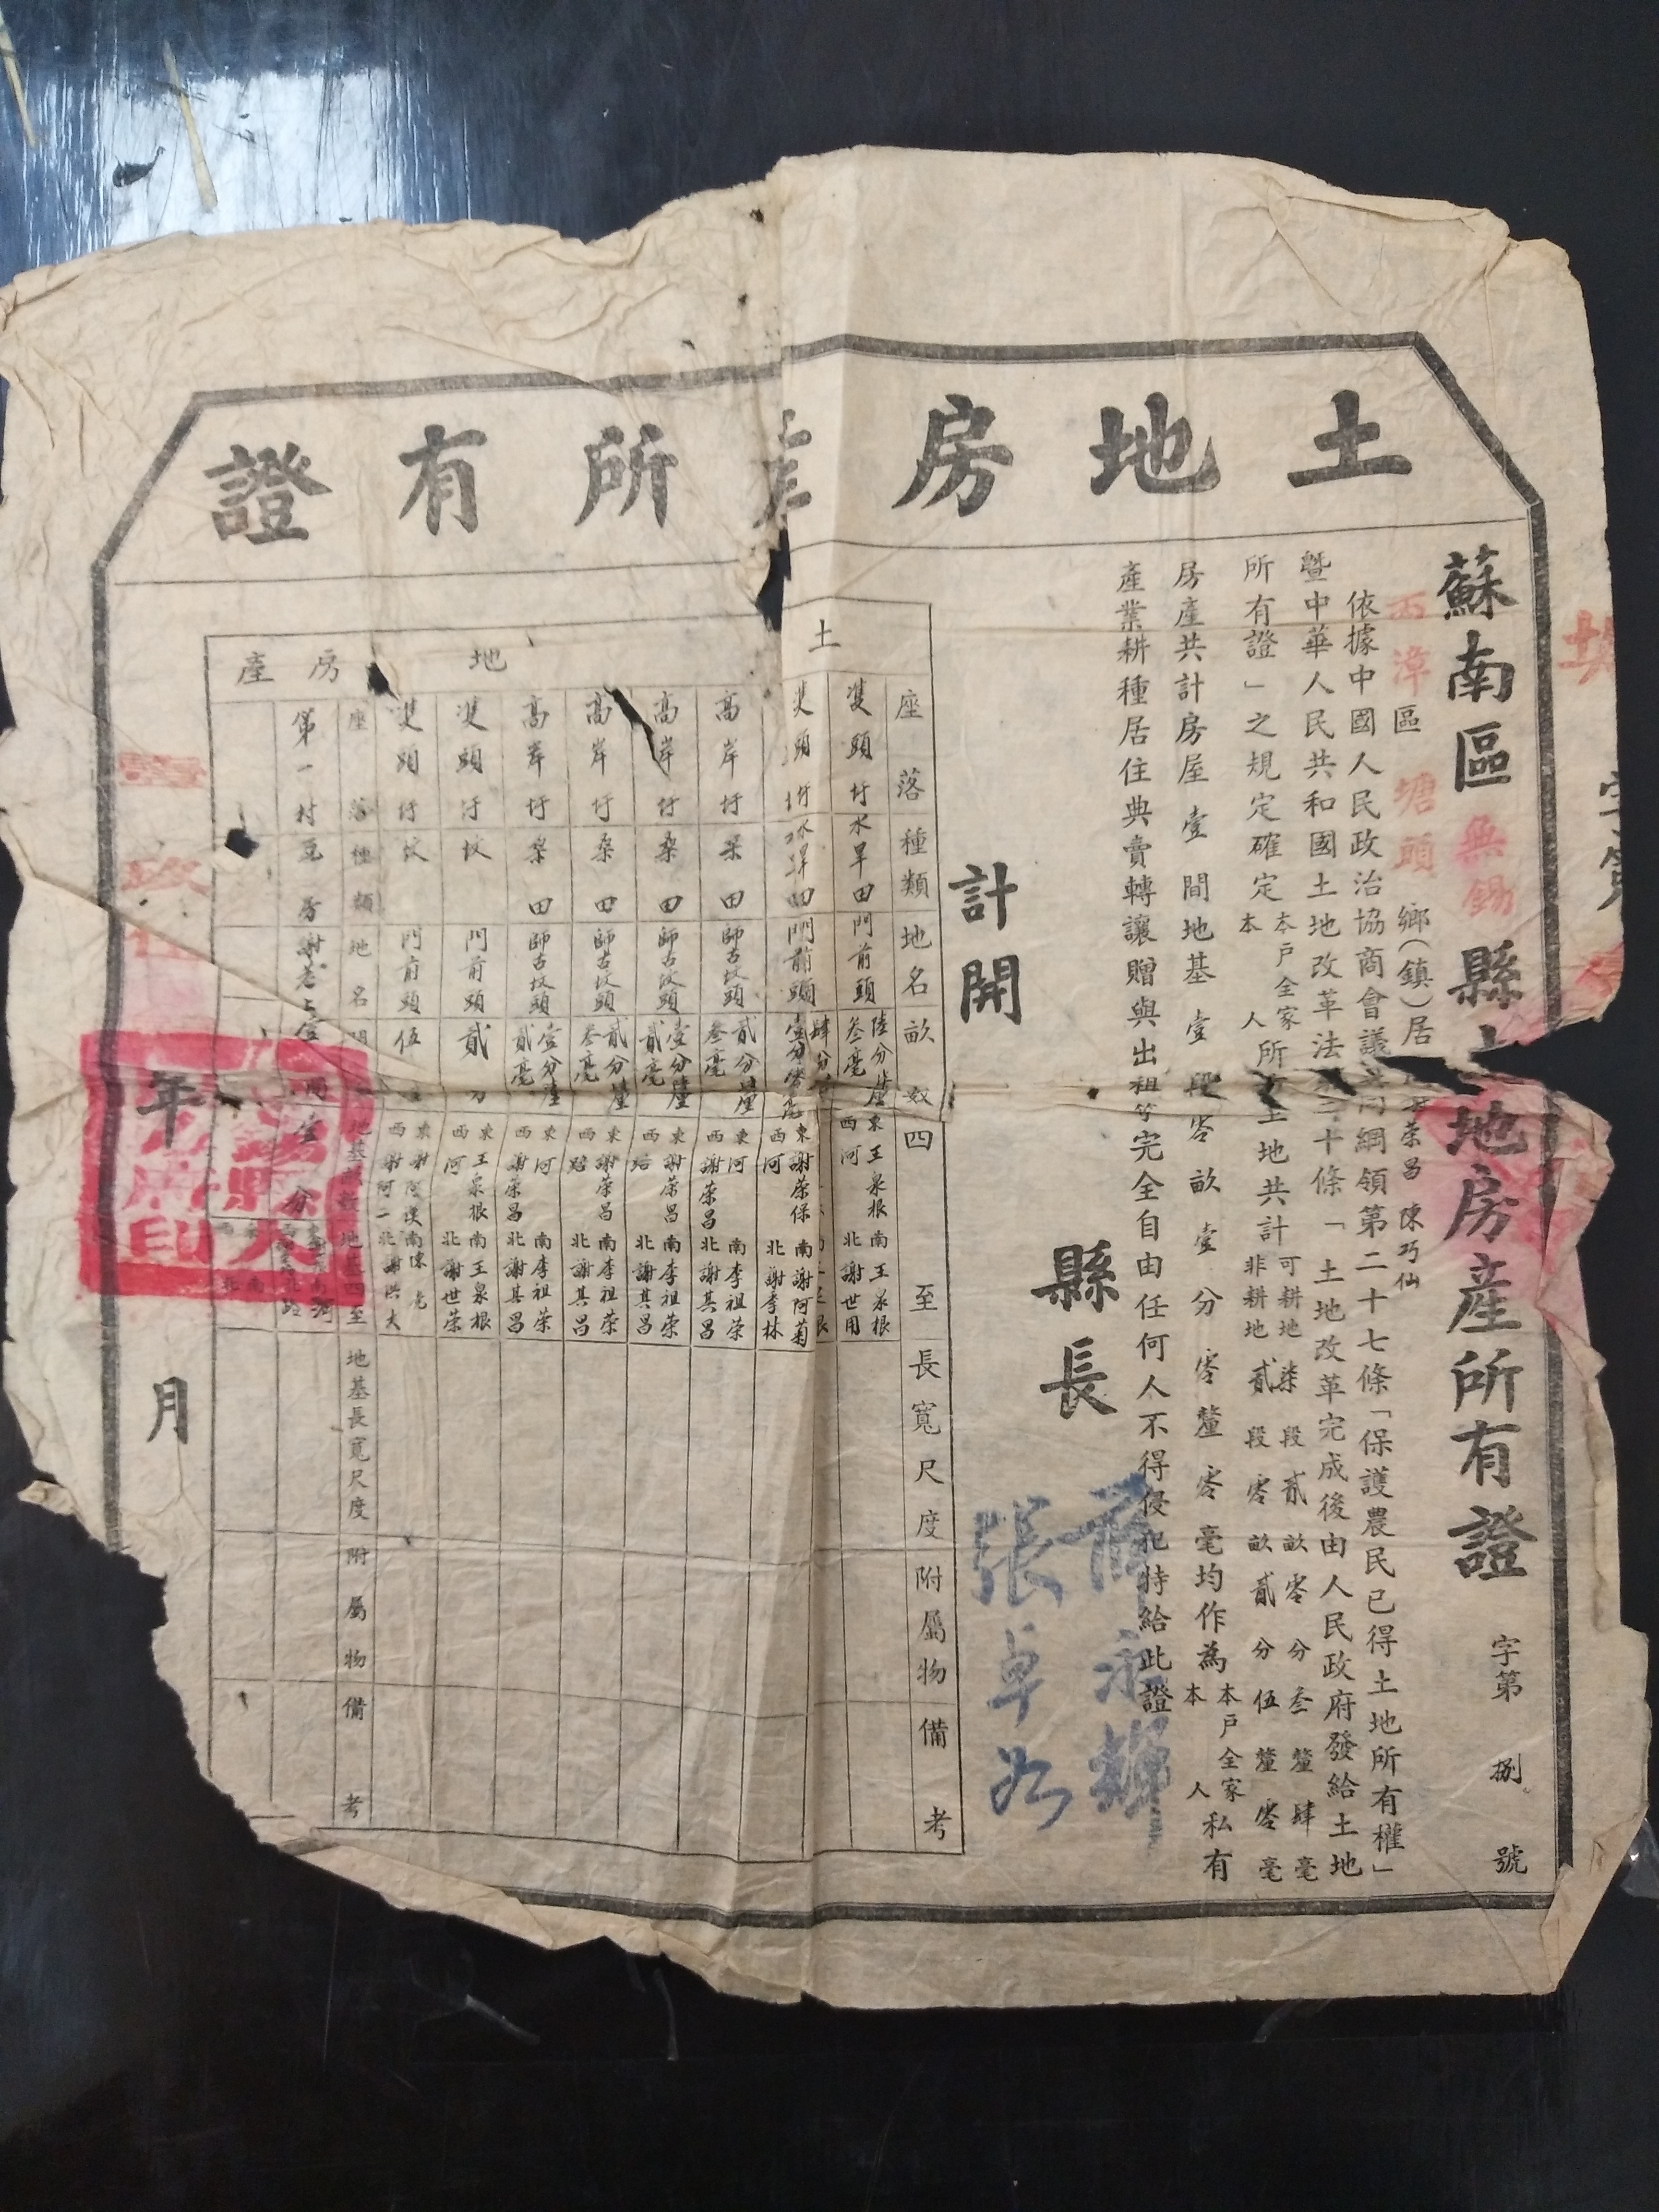 土地房產所有證
蘇南區無錫縣土地房產所有證 字第 捌 號
西漳區 塘頭 鄉(鎮)居 榮昌 陳巧仙
依據中國人民政治協商會議共同綱領第二十七條「保護農民已得土地所有權」
暨中華人民共和國土地改革法第三十條「土地改革完成後由人民政府發給土地
所有證」之規定確定本戶全家本人所有土地共計可耕地柒段貳畝零分叁釐肆毫非耕地貳段零畝貳分伍釐零毫
房產共計房屋壹間地基壹段零畝壹分零釐零毫均作為本戶全家本人私有
產業耕種居住典賣轉讓贈與出租等完全自由任何人不得侵犯特給此證
縣長 永輝
張卓如
計開
土地
座落 種類 地名 畝 四至 長寬尺度 附屬物 備考
雙頭圩 水旱田 門前頭 陸分 釐叁毫 東王泉根 西河 南王泉根 北謝世用
頭圩 水旱田 門前頭 肆分 東謝榮保 西河 南謝阿菊 北謝季林
高岸圩 桑田 師古坟頭 貳分 釐叁毫 東河 西謝榮昌 南李祖榮 北謝其昌
高岸圩 桑田 師古坟頭 壹分 釐貳毫 東謝榮昌 西路 南李祖榮 北謝其昌
高岸圩 桑田 師古坟頭 貳分 釐叁毫 東謝榮昌 西路 南李祖榮 北謝其昌
高岸圩 桑田 師古坟頭 壹分 釐貳毫 東河 西謝榮昌 南李祖榮 北謝其昌
雙頭圩 坟 門前頭 貳分 東王泉根 西河 南王泉根 北謝世榮
雙頭圩 坟 門前頭 伍 東謝阿 西謝阿一 南陳 北謝洪大
房產
座落 種類 地名 間 地基畝數 地基四至 地基長寬尺度 附屬物 備考
第一村 瓦房 謝巷上 壹間 壹分 南河
年 月